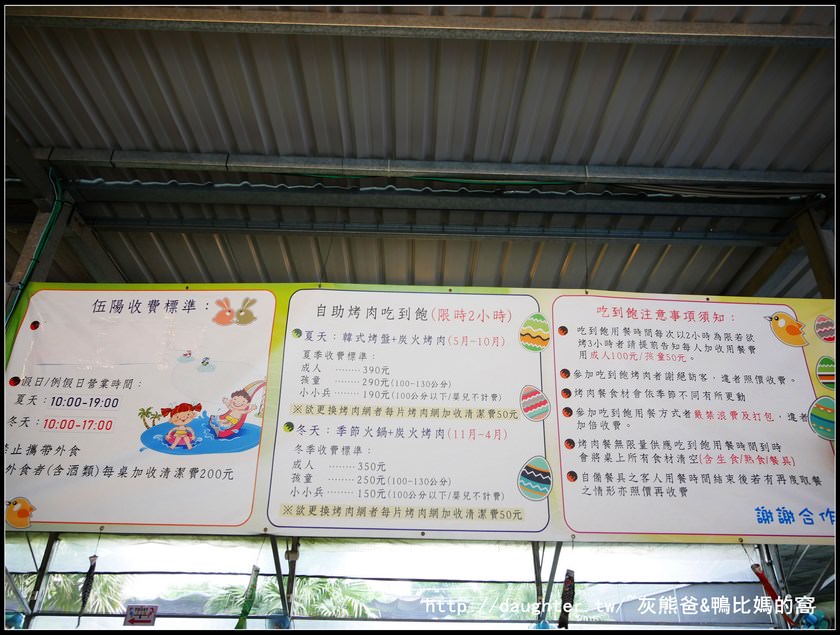 伍陽收費標準：
假日/例假日營業時間：
夏天：10:00-19:00
冬天：10:00-17:00
禁止攜帶外食
外食者(含酒類)每桌加收清潔費200元
自助烤肉吃到飽(限時2小時)
夏天：韓式烤盤+炭火烤肉(5月~10月)
夏季收費標準：
成人 ........390元
孩童 ........290元(100-130公分)
小小兵........190元(100公分以下/嬰兒不計費)
※欲更換烤肉網者每片烤肉網加收清潔費50元
冬天：季節火鍋+炭火烤肉(11月-4月)
冬季收費標準：
成人 ........350元
孩童 ........250元(100-130公分)
小小兵........150元(100公分以下/嬰兒不計費)
※欲更換烤肉網者每片烤肉網加收清潔費50元
吃到飽注意事項須知：
吃到飽用餐時間每次以2小時為限若欲
烤3小時者請提前告知每人加收用餐費
用成人100元/孩童50元。
參加吃到飽烤肉者謝絕訪客，違者照價收費。
烤肉餐食材會依季節不同有所更動
參加吃到飽用餐方式者嚴禁浪費及打包，違者
加倍收費。
烤肉餐無限量供應吃到飽用餐時間到時
會將桌上所有食材清空(含生食/熟食/餐具)
自備餐具之客人用餐時間結束後若有再度取餐
之情形亦照價再收費
謝謝合作
http://daughter.tw/ 灰熊爸&鴨比媽的窩